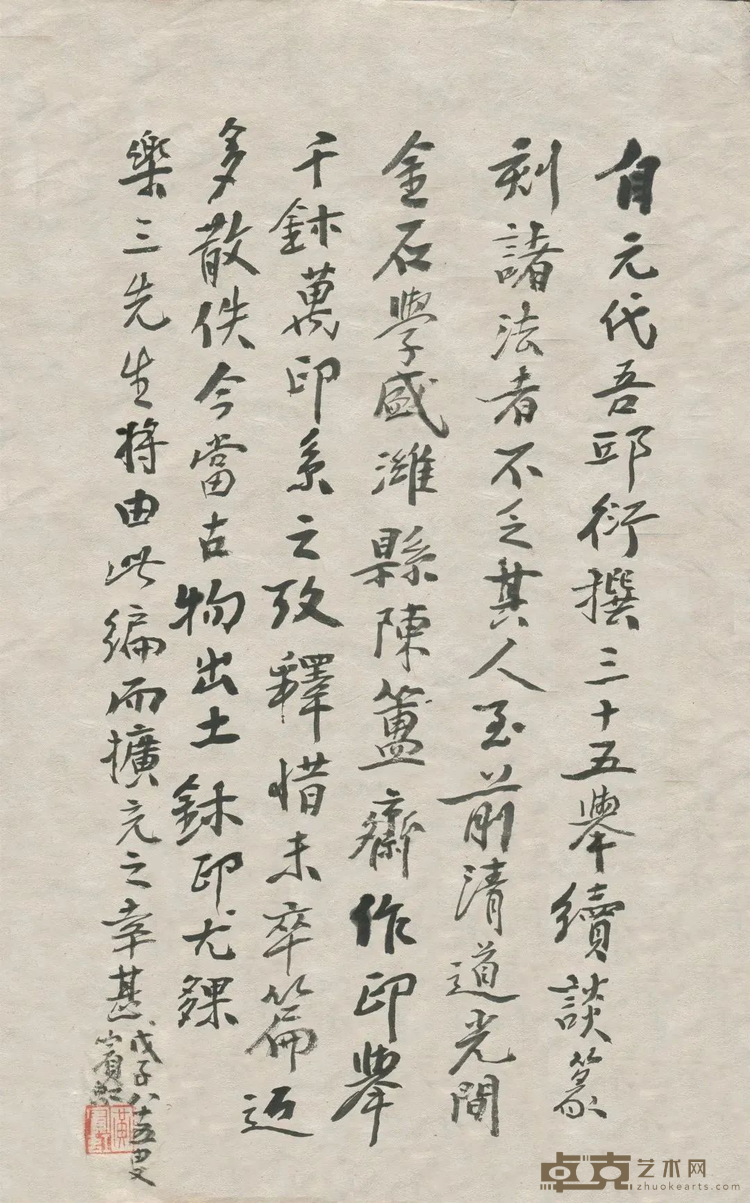 自元代吾邱衍撰三十五舉續談篆
刻諸法者不乏其人至前清道光間
金石學盛濰縣陳簠齋作印舉
千鉥萬印系之攷釋惜未卒篇近
多散佚今當古物出土鉥印尤夥
樂三先生將由此編而擴充之幸甚
戊子八十五叟
賓虹
卓克艺术网
zhuokearts.com